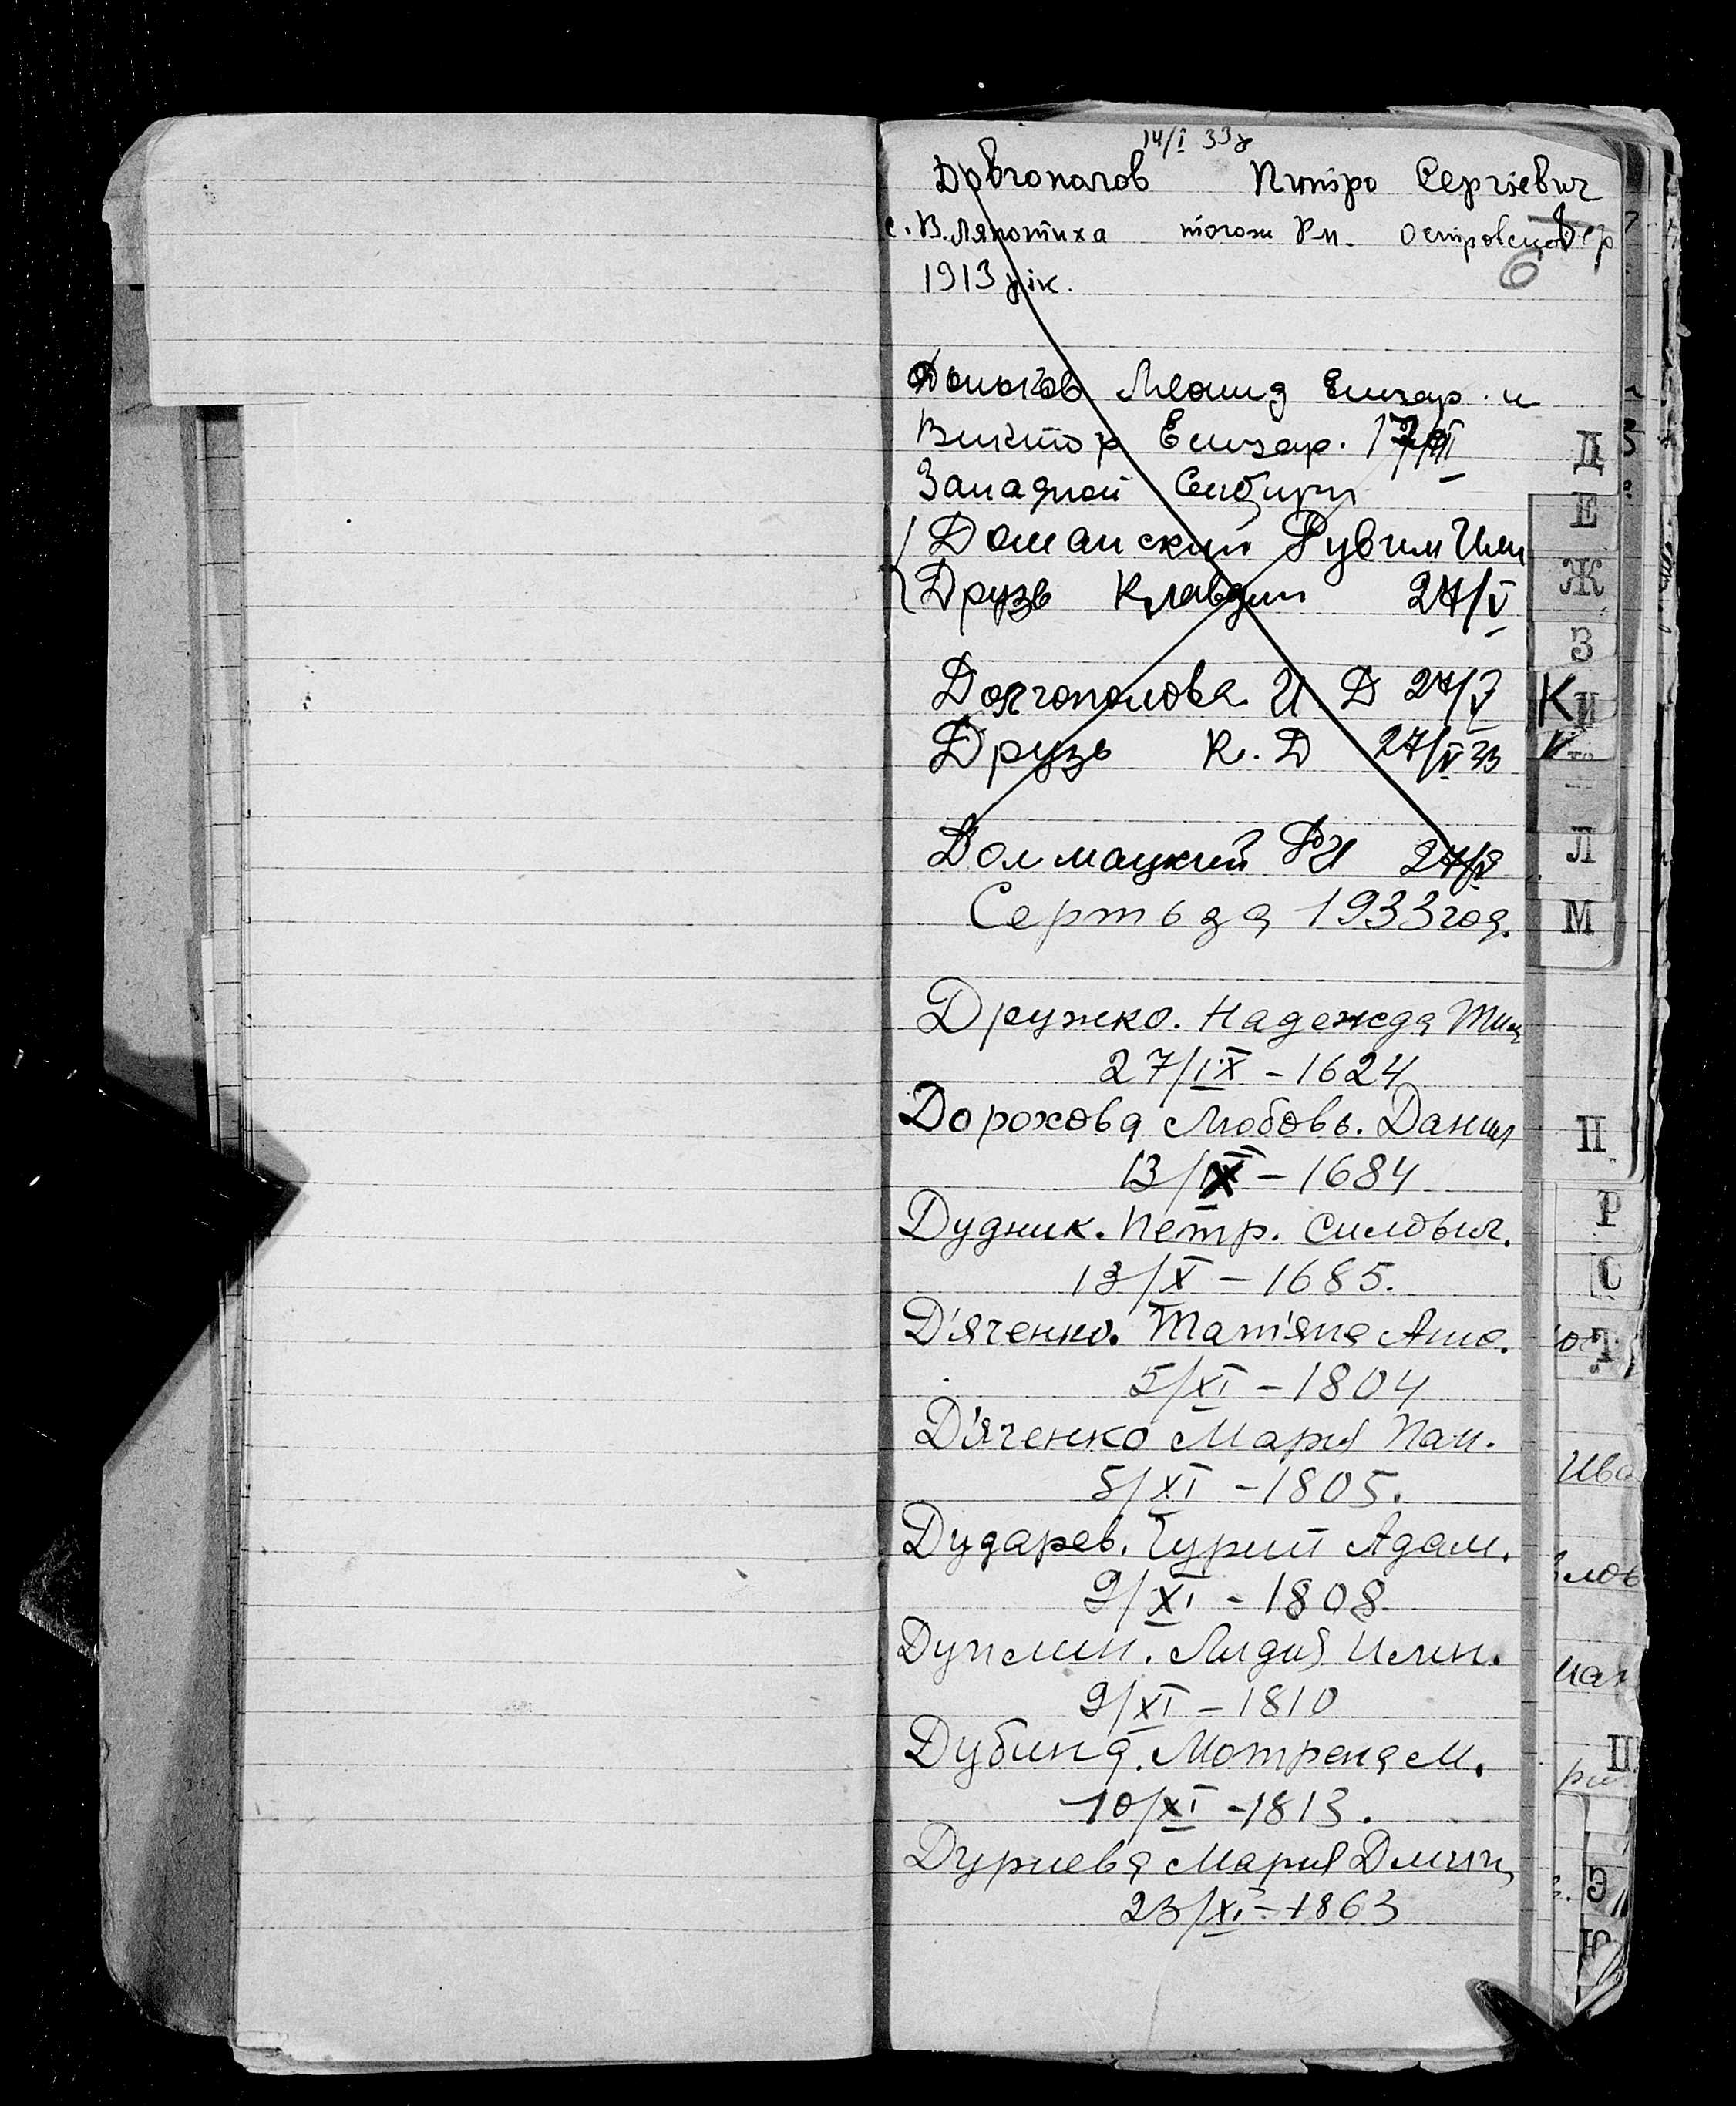 14/I 33р
Довгополов Питро Сергіевич
с. В. Ляпотиха тогож Рн.
6
1913 рік.
Леонид Елизар. и
Виктор Елизар. 17/
Западной Сибири
Доманский Рувим Или
Друзь Клавдии 27/V
Долгополова И. Д 27/V
Друзь К. Д 27/V 33
Долмацкий РИ 27/V
1933 год.
Дружко. Надежда Тим
27/IX - 1624
Дорохова Любовь. Данил
13/X - 1684
Дудник. Петр. Силович.
13/X - 1685.
Д'яченко. Тат'яна
5/XI - 1804
Д'яченко Мария Пан.
5/XI - 1805.
Дударев. Гурий Адам.
9/XI - 1808
Лидия Илин.
9/XI - 1810
Дубина. Мотрена М.
10/XI - 1813.
Мария Дмит
23/XI - 1863
Д
Е
Ж
З
К
И
Л
М
П
Р
С
Т
Э
Ю